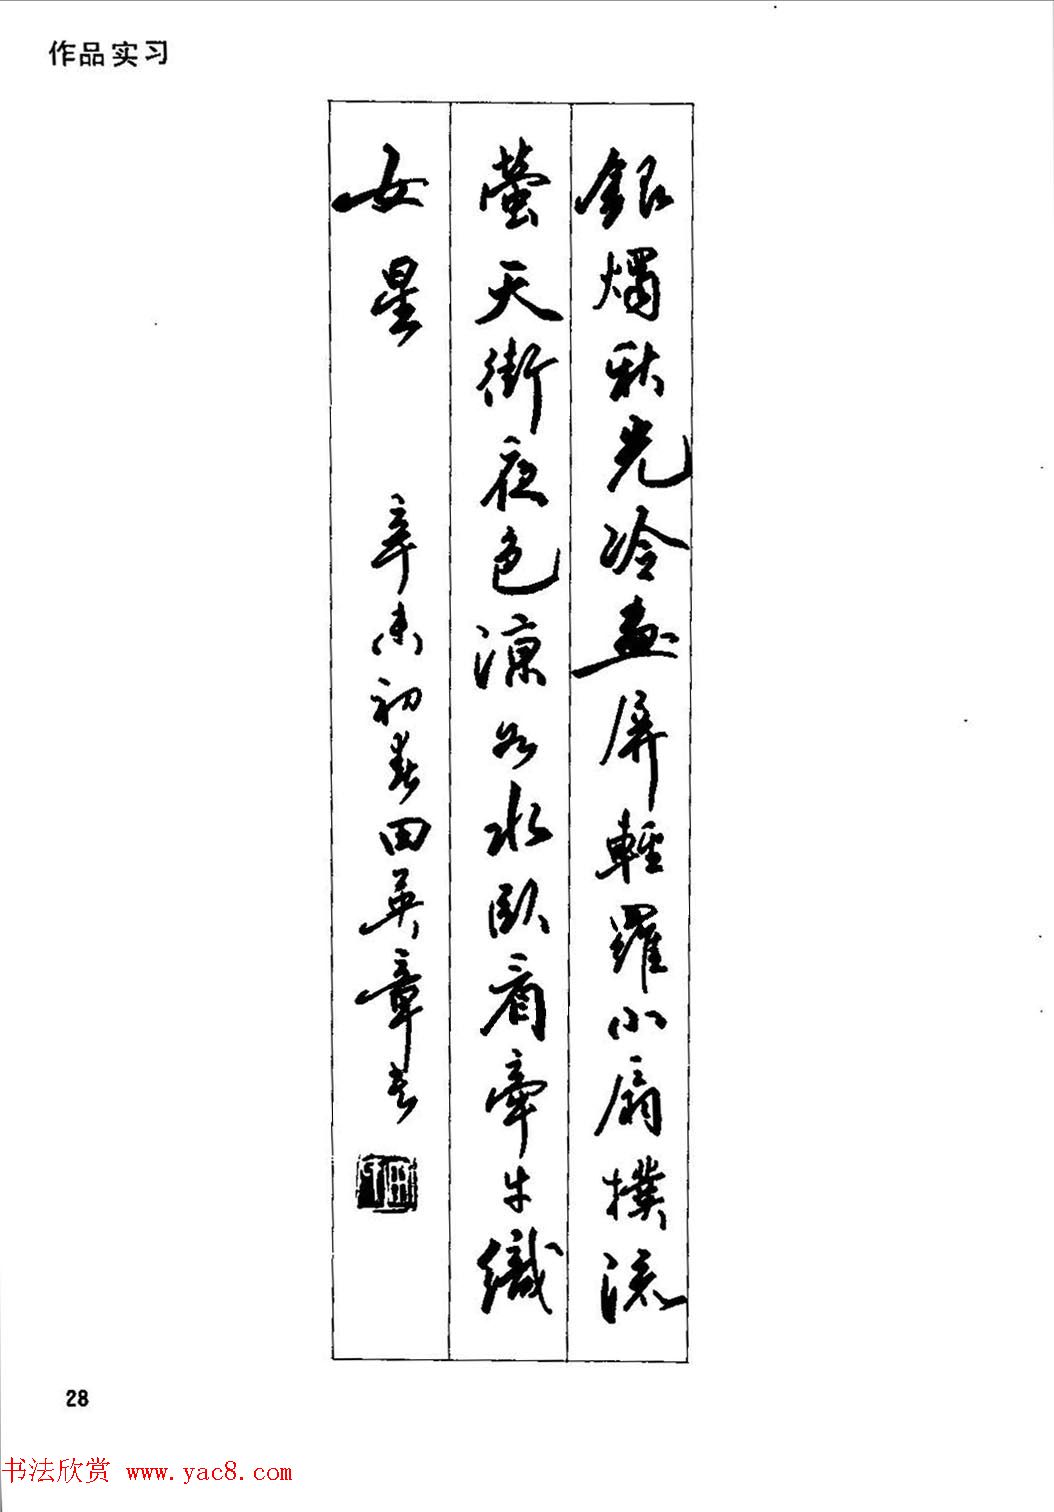 作品实习
銀燭秋光冷畫屏輕羅小扇撲流
螢天街夜色涼如水臥看牽牛織
女星 辛未初春田英章書
28
书法欣赏 www.yac8.com